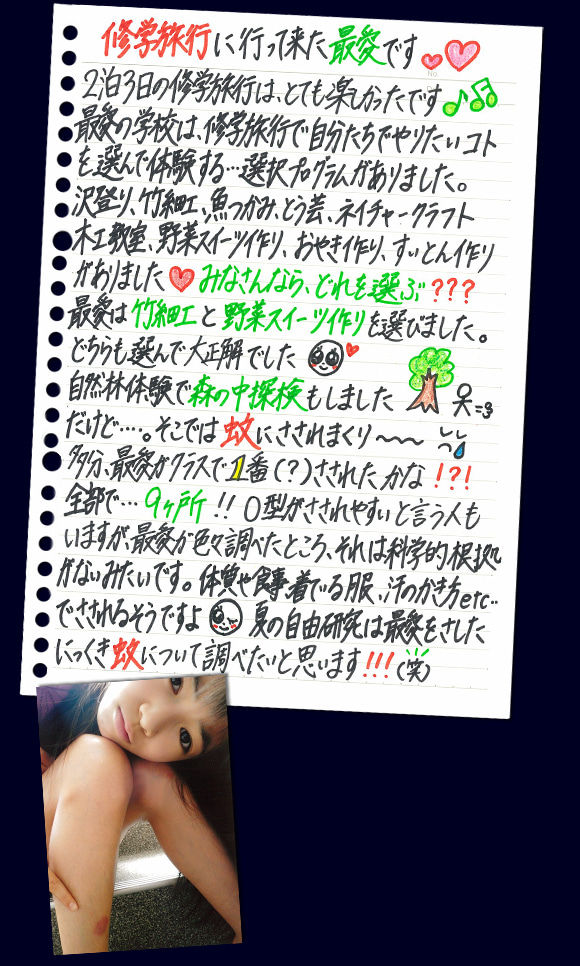 修学旅行に行って来た最愛です
No.
2泊3日の修学旅行は、とても楽しかったです
最愛の学校は、修学旅行で自分たちでやりたいコト
を選んで体験する…選択プログラムがありました。
沢登り、竹細工、魚つかみ、とう芸、ネイチャークラフト
木工教室、野菜スイーツ作り、おやき作り、すいとん作り
がありました みなさんなら、どれを選ぶ???
最愛は竹細工と野菜スイーツ作りを選びました。
どちらも選んで大正解でした
自然林体験で森の中探検もしました
だけど…。そこでは蚊にさされまくり〜〜〜
多分、最愛がクラスで1番(?)さされたかな!?!
全部で…9ヶ所!! O型がさされやすいと言う人も
いますが、最愛が色々調べたところ、それは科学的根拠
がないみたいです。体質や食事、着ている服、汗のかき方etc…
でさされるそうですよ 夏の自由研究は最愛をさした
にっくき蚊について調べたいと思います!!!(笑)